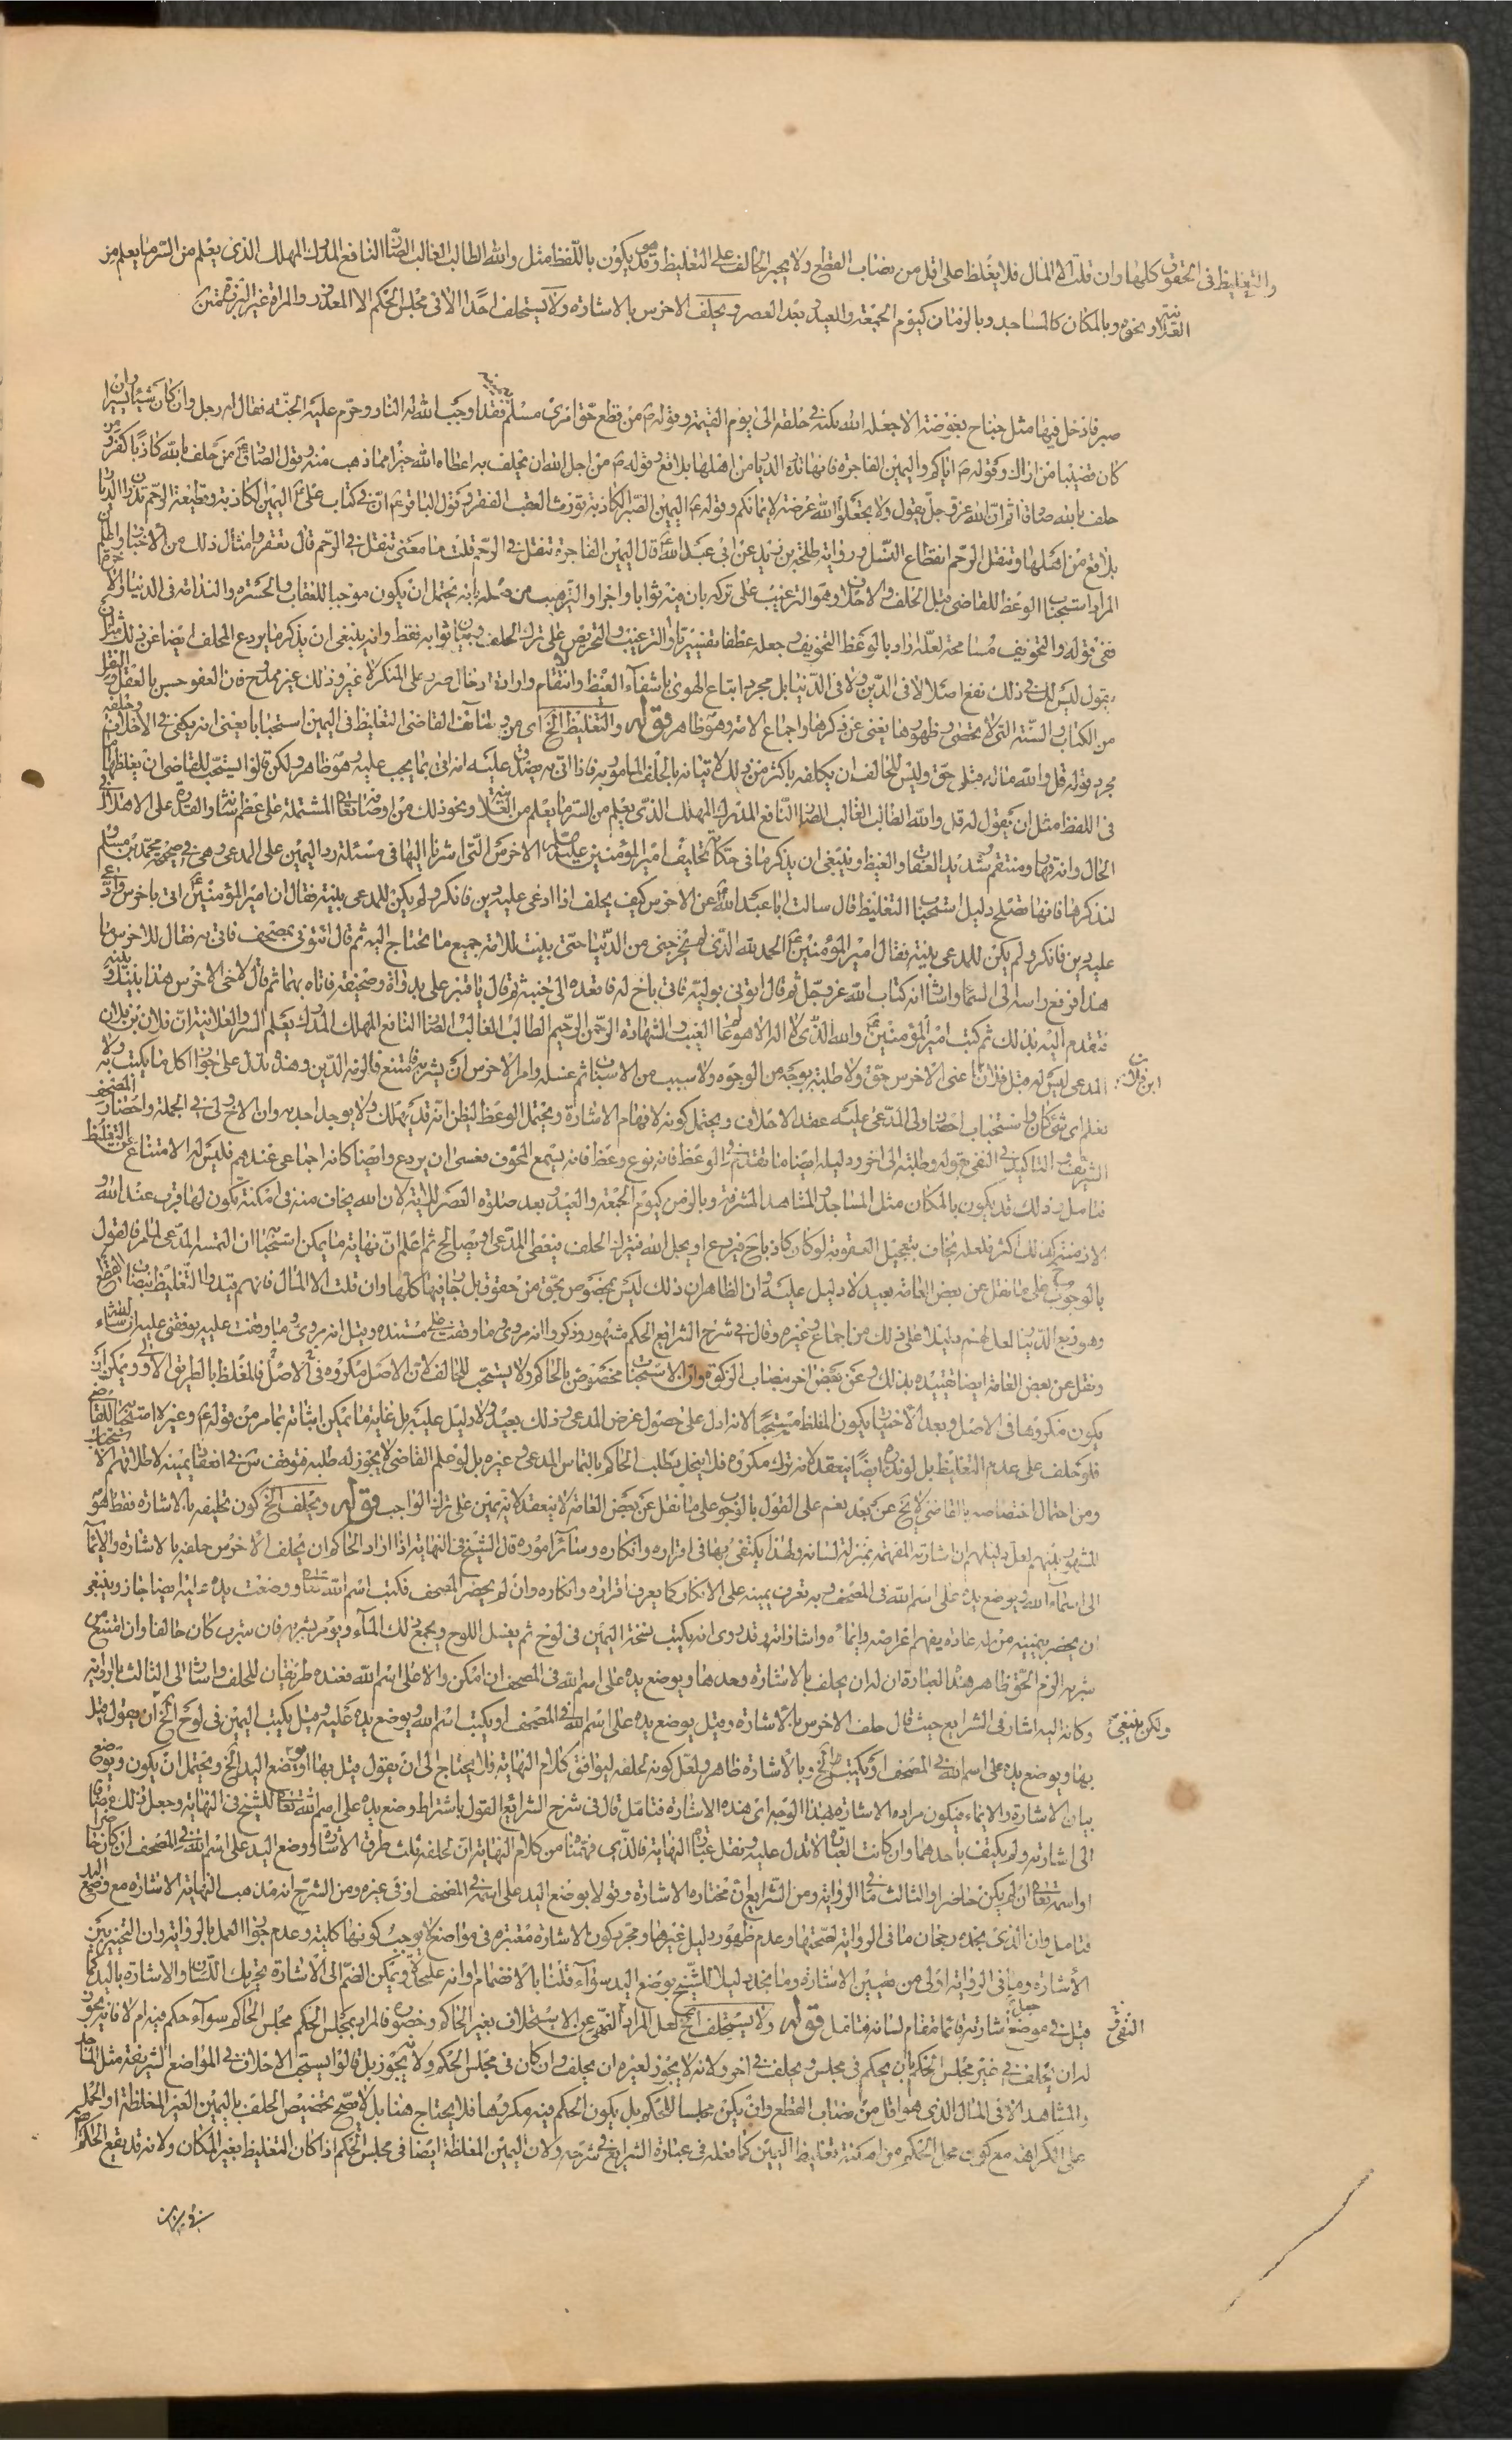 والتغليظ فى الحقوق كلها وان قلت الا المال فلا يغلظ على اقل من نصاب القطع ولا يجبر الحالف على التغليظ وقد يكون باللفظ مثل والله الطالب الغالب الضار النافع المدرك المهلك الذى يعلم من السر ما يعلم من
العلانية ونحوه وبالمكان كالمساجد وبالزمان كيوم الجمعة والعيد وبعد العصر ويحلف الاخرس بالاشارة ولا يستحلف احدا الا فى مجلس الحكم الا المعذور والمراة غير البرزة
صبر فادخل فيها مثل جناح بعوضة الا جعله الله نكتة فى قلبه الى يوم القيمة وقوله ص من قطع حق امرئ مسلم فقد اوجب الله له النار وحرم عليه الجنة فقال له رجل وان كان شيئا يسيرا وان
كان قضيبا من اراك وكقوله ص اياكم واليمين الفاجرة فانها تدع الديار من اهلها بلاقع وقوله ص من اجل الله ان يحلف به اعطاه الله خيرا مما ذهب منه وقول الصادق ع من حلف بالله كاذبا كفر ومن
حلف بالله صادقا اثم ان الله عز وجل يقول ولا تجعلوا الله عرضة لايمانكم وقوله ع اليمين الصبر الكاذبة تورث العقب الفقر وكقول الباقر ع ان فى كتاب على ع اليمين الكاذبة وقطيعة الرحم تذران الديار
بلاقع من اهلها وتنقل الرحم انقطاع النسل ورواية طلحة بن زيد عن ابى عبد الله ع قال اليمين الفاجرة تنقل فى الرحم قلت ما معنى تنقل فى الرحم قال تعقر وامثال ذلك من الاخبار
المراد استحباب الوعظ للقاضى قبل الحلف والاحلاف وهو الترغيب على تركه بان فيه ثوابا واجرا والترهيب من فعله بانه يحتمل ان يكون موجبا للعقاب والحسرة والندامة فى الدنيا والاخرة
ففى قوله والتخويف مسامحة لعله اراد بالوعظ التخويف وجعله عطفا تفسيريا والترغيب والتحريض على ترك الحلف وبيان ثوابه فقط وانه ينبغى ان يذكر ما يردع المحلف ايضا عن ذلك مثل ان
يقول ليس لك فى ذلك نفع اصلا لا فى الدين ولا فى الدنيا بل مجرد اتباع الهوى باشفاء الغيظ وانتقام وارادة ادخال ضرر على المنكر لا غير وذلك غير ممدوح فان العفو حسن بالعقل والنقل
من الكتاب والسنة التى لا تحصى وظهورها يغنى عن ذكرها واجماع الامة وهو ظاهر قوله والتغليظ الخ اى من وظائف القاضى التغليظ فى اليمين استحبابا يعنى انه يكفى فى الاحلاف وحلفه
مجرد قوله قل والله ماله قبلى حق وليس للحالف ان يكلفه باكثر من ذلك لاتيانه بالحلف المامور به فاذا اتى به يصدق عليه انه اتى بما يجب عليه وهو ظاهر ولكن قالوا يستحب للقاضى ان يغلظها
فى اللفظ مثل ان يقول له قل والله الطالب الغالب الضار النافع المدرك المهلك الذى يعلم من السر ما يعلم من العلانية ونحو ذلك من اوصافه تعالى المشتملة على عظم شانه والقدرة على الاهلاك فى
الحال وانه قهار ومنتقم شديد العقاب والغيظ وينبغى ان يذكر ما فى حكاية تحليف امير المؤمنين عليه السلام الاخرس التى اشرنا اليها فى مسئلة رد اليمين على المدعى وهى فى صحيحة محمد بن مسلم
لنذكرها فانها تصلح دليل استحباب التغليظ قال سالت ابا عبد الله ع عن الاخرس كيف يحلف اذا ادعى عليه دين فانكر ولم يكن للمدعى بينة فقال ان امير المؤمنين ع اتى باخرس وادعى
عليه دين فانكر ولم يكن للمدعى بينة فقال امير المؤمنين ع الحمد لله الذى لم يخرجنى من الدنيا حتى بينت للامة جميع ما تحتاج اليه ثم قال ائتونى بمصحف فاتى به فقال للاخرس ما
هذا فرفع راسه الى السماء واشار انه كتاب الله عز وجل ثم قال ايتونى بوليه فاتى باخ له فاقعده الى جنبه ثم قال يا قنبر على بدواة وصحيفة فاتاه بهما ثم قال لاخى الاخرس هذا بينك وبينه
فتقدم اليه بذلك ثم كتب امير المؤمنين ع والله الذى لا اله الا هو عالم الغيب والشهادة الرحمن الرحيم الطالب الغالب الضار النافع المهلك المدرك الذى يعلم السر والعلانية ان فلان بن فلان
المدعى ليس له قبل فلان بن فلان اعنى الاخرس حق ولا طلبة بوجه من الوجوه ولا سبب من الاسباب ثم غسله وامر الاخرس ان يشربه فامتنع فالزمه الدين وهذه تدل على جواز اكل ما يكتب به ولا
ابن فلان
نعلم اى شئ كان واستحباب احضار ولى المدعى عليه عقد الاحلاف ويحتمل كونه لافهام الاشارة ويحتمل الوعظ ليظن انه قد يهلك ولا يوجد احد به وان الاخ ولى فى الجملة واحضار المصحف
الشريف والتاكيد فى النفى بقوله ولا طلبة الى اخره ودليله ايضا ما تقدم فى الوعظ فانه نوع وعظ فانه يسمع المخوف فعسى ان يردع وايضا كانه اجماعى عندهم فليس له الامتناع عن التغليظ
فتامل وذلك قد يكون بالمكان مثل المساجد والمشاهد المشرفة وبالزمن كيوم الجمعة والعيد وبعد صلوة العصر للاية لان الله يخاف منه فى امكنة يكون لها قرب عند الله و
الازمنة كذلك اكثر فلعله يخاف بتعجيل العقوبة لو كان كاذبا ح فيردع او يجل الله فيترك الحلف فيعطى المدعى او يصالح ثم اعلم ان نهاية ما يمكن استحبابا ان التمسه المدعى ايضا فالقول
بالوجوب ح على ما نقل عن بعض العامة بعيد لا دليل عليه وان الظاهر ان ذلك ليس بمخصوص بحق من حقوق بل جار فيها كلها وان قلت الا المال فانهم قيدوا التغليظ بنصاب القطع
وهو ربع الدينار لعل لهم دليلا على ذلك من اجماع وغيره وقال فى شرح الشرايع الحكم مشهور وذكروا انه مروى وما وقفت على مستنده وقيل انه مروى وما وقفت عليه
ونقل عن بعض العامة ايضا تقييده بذلك وعن بعض اخر بنصاب الزكوة وان الاستحباب مخصوص بالحاكم ولا يستحب للحالف لان الاصل مكروه فى الاصل فالمغلظ بالطريق الاولى ويمكن ان
يكون مكروها فى الاصل وبعد الاختيار يكون المغلظ مستحبا لانه ادل على حصول غرض المدعى وذلك بعيد ولا دليل عليه بل غاية ما يمكن اثباته بما مر من قوله ع وغيره استحبابه للقاضى
فلو حلف على عدم التغليظ بل لو نذر ايضا ينعقد لانه ترك مكروه فلا ينحل بطلب الحاكم بالتماس المدعى وغيره بل لو علم القاضى لا يجوز له طلبه فتوقف س فى انعقاد يمينه لاطلاقهم الاستحباب
ومن احتمال اختصاصه بالقاضى لا يخ عن بعد نعم على القول بالوجوب على ما نقل عن بعض العامة لا ينعقد لانه يمين على ترك الواجب قوله ويحلف الخ كون تحليفه بالاشارة فقط هو
المشهور بينهم لعل دليلهم ان اشارته المفهمة بمنزلة لسانه ولهذا يكتفى بها فى اقراره وانكاره وسائر اموره قال الشيخ فى النهاية اذا اراد الحاكم ان يحلف الاخرس حلفه بالاشارة والايماء
الى اسماء الله ويوضع يده على اسم الله فى المصحف وبه تعرف يمينه على الانكار كما يعرف اقراره وانكاره وان لم يحضر المصحف فكتب اسم الله تعالى ووضعت يده عليه ايضا جاز وينبغى
ان يحضر يمينه من له عادة بفهم اغراضه وايمائه واشاراته وقد روى انه يكتب نسخة اليمين فى لوح ثم يغسل اللوح ويجمع ذلك الماء ويؤمر بشربه فان شرب كان حالفا وان امتنع من
شربه الزم الحق ظاهر هذه العبارة ان له ان يحلف بالاشارة وحدها ويوضع يده على اسم الله فى المصحف ان امكن والا على اسم الله فعنده طريقان للحلف واشار الى الثالث بالرواية
وكانه اليه اشار فى الشرايع حيث قال حلف الاخرس بالاشارة وقيل يوضع يده على اسم الله فى المصحف او يكتب اسم الله ويوضع يده عليه وقيل يكتب اليمين فى لوح الخ ان يقول قبل
ولكن ينبغى
بها ويوضع يده على اسم الله فى المصحف او يكتب الخ وبالاشارة ظاهر ولعل كونه لحلفه ليوافق كلام النهاية فلا يحتاج الى ان يقول قبل بها او بوضع اليد الخ ويحتمل ان يكون ويوضع
بيان الاشارة والايماء فيكون مراده الاشارة بهذا الوجه اى هذه الاشارة فتامل قال فى شرح الشرايع القول باشتراط وضع يده على اسم الله تعالى للشيخ فى النهاية وجعل ذلك مضافا
الى اشارته ولم يكتف باحدهما وان كانت العبارة لا تدل عليه ونقل عبارة النهاية فالذى فهمنا من كلام النهاية ان لحلفه ثلث طرق الاشارة ووضع اليد على اسم الله فى المصحف ان كان حاضرا
او اسمه تعالى ان لم يكن حاضرا والثالث ما فى الرواية ومن الشرايع ان مختاره الاشارة وقولا بوضع اليد على اسمه فى المصحف او فى غيره ومن الشرح انه مذهب النهاية الاشارة مع وضع اليد
فتامل وان الذى نجده رجحان ما فى الرواية لصحتها وعدم ظهور دليل غيرها ومجرد كون الاشارة معتبرة فى مواضع لا يوجب كونها كلية وعدم جواز العمل بالرواية وان التخيير بين
الاشارة وما فى الرواية اولى من تعيين الاشارة وما نجد دليلا للشيخ بوضع اليد سواء قلنا بالانضمام او انه على حدة ويمكن الضم الى الاشارة تحريك اللسان والاشارة باليد كما
قيل فى موضع جعل اشارته قائما مقام لسانه فتامل قوله ولا يستحلف الخ لعل المراد النهى عن الاستحلاف بغير الحاكم وحضوره فالمراد بمجلس الحكم مجلس الحاكم سواء حكم فيه ام لا فانه يجوز
له ان يحلف فى غير مجلس الحكم بان يحكم فى مجلس ويحلف فى اخر ولانه لا يجوز لغيره ان يحلف وان كان فى مجلس الحكم ولانه يجوز بل قالوا يستحب الاحلاف فى المواضع الشريفة مثل المساجد
والمشاهد الا فى المال الذى هو اقل من نصاب القطع وان يكن مجلسا للحكم بل يكون الحكم فيه مكروها فلا يحتاج هنا بل لا يصح تخصيص الحلف باليمين الغير المغلظة او الحمل
على الكراهة مع كون محل الحكم من امكنة تغليظ اليمين كما فعله فى عبارة الشرايع فى شرحه ولان اليمين المغلظة ايضا فى مجلس الحكم اذا كان التغليظ بغير المكان ولانه قد يقع الحكم